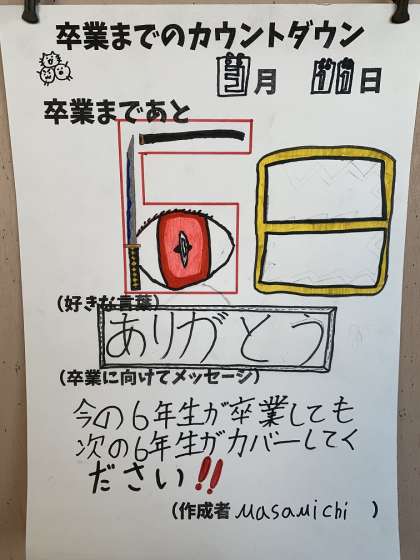 卒業までのカウントダウン
3月 11日
卒業まであと
6日
(好きな言葉)
ありがとう
(卒業に向けてメッセージ)
今の6年生が卒業しても
次の6年生がカバーしてく
ださい!!
(作成者 Masamichi )